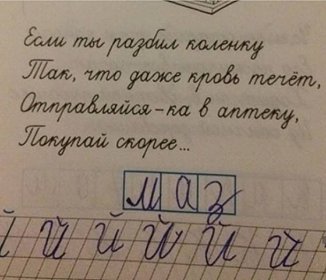 Если ты разбил коленку
Так, что даже кровь течёт,
Отправляйся-ка в аптеку,
Покупай скорее...
маз
й й й й й й